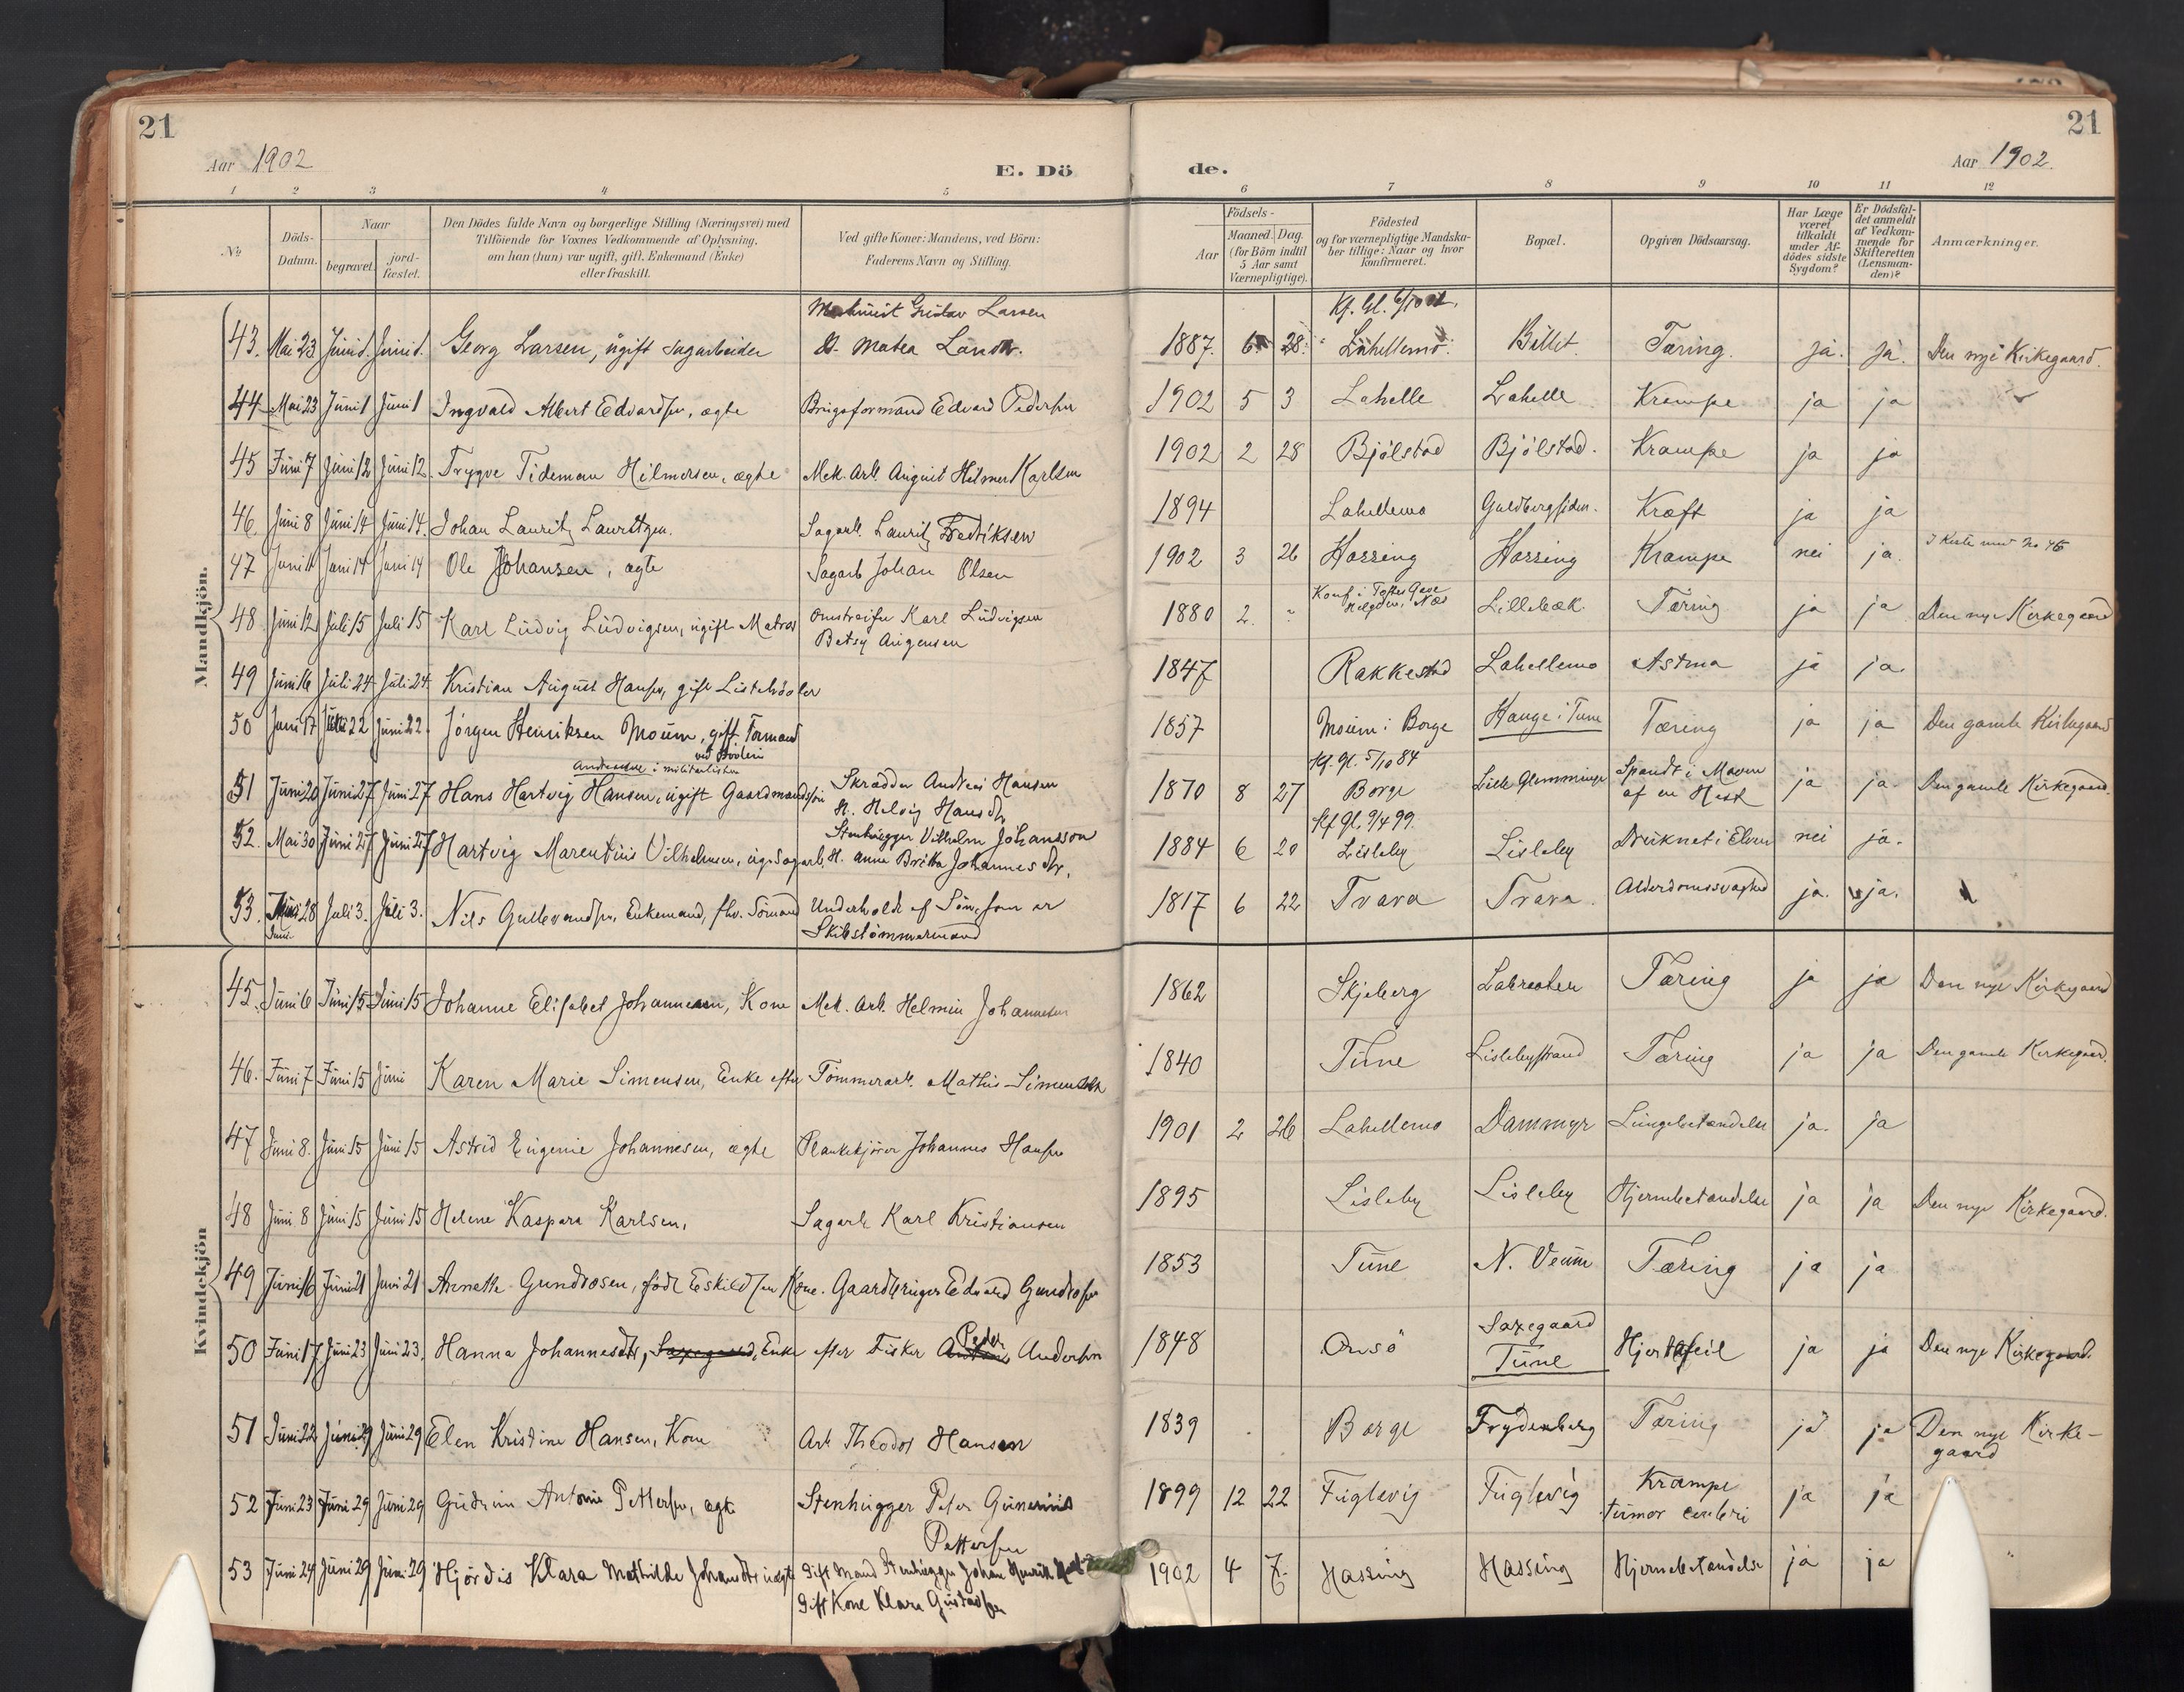 21
21
Aar 1902
E. Dö
de.
Aar 1902.
1 2 3 4 5 6 7 8 9 10 11 12
No
Döds-
Datum.
Naar
begravet.
jord-
fæstet.
Den Dödes fulde Navn og borgerlige Stilling (Næringsvei) med
Tilföiende for Voxnes Vedkommende af Oplysning,
om han (hun) var ugift, gift, Enkemand (Enke)
eller fraskilt.
Ved gifte Koner: Mandens, ved Börn:
Faderens Navn og Stilling.
Födsels-
Aar
Maaned. Dag.
(for Börn indtil
5 Aar samt
Værnepligtige).
Födested
og for værnepligtige Mandska-
ber tillige: Naar og hvor
konfirmeret.
Bopæl.
Opgiven Dödsaarsag.
Har Læge
været
tilkaldt
under Af-
dödes sidste
Sygdom?
Er Dödsfal-
det anmeldt
af Vedkom-
mende for
Skifteretten
(Lensman-
den)?
Anmærkninger.
Mandkjön.
Gustav Larsen
43. Mai 23 Juni 1. Juni 1. Georg Larsen, ugift Sagarbeider
H. Matea Larsdtr.
1887. 28. Lahellemo. Billet. Tæring. ja. ja. Den nye Kirkegaard.
44 Mai 23 Juni 1 Juni 1 Ingvald Albert Edvardsen, ægte Brugsformand Edvard Pedersen 1902 5 3 Lahelle Lahelle Krampe ja ja
45 Juni 7 Juni 12 Juni 12. Trygve Tideman Hilmersen, ægte Mek. Arb. August Hilmer Karlsen 1902 2 28 Bjölstad Bjölstad. Krampe ja ja
46 Juni 8 Juni 14 Juni 14. Johan Lauritz Lauritzen. Sagarb. Lauritz Fredriksen 1894 Lahellemo Guldbergsiden. Kræft ja ja
47 Juni 11 Juni 14 Juni 14 Ole Johansen, ægte Sagarb Johan Olsen 1902 3 26 Hassing Hassing Krampe nei ja. I Kiste med No 46
48 Juni 12 Juli 15 Juli 15 Karl Ludvig Ludvigsen, ugift Matros Omstreifer Karl Ludvigsen
Betsy Augensen
1880 2. Lillebæk. Tæring ja ja Den nye Kirkegaard
49 Juni 16 Juli 24 Juli 24 Kristian August Hansen, gift Listehövler 1847 Rakkestad Lahellemo Astma ja ja.
50 Juni 17 Juni 22 Juni 22. Jörgen Henriksen Moum, gift Formand
1857 Moum i Borge Hauge i Tune Tæring ja ja Den gamle Kirkegaard
i militærlisten
51 Juni 20 Juni 27 Juni 27 Hans Hartvig Hansen, ugift Gaardmandssön
Skrædder Andreas Hansen
H. Helvig Hansdtr.
Kf. Gl. 5/10 84
1870 8 27 Borge Lille Glemminge Spændt i Maven
af en Hest
ja ja. Den gamle Kirkegaard.
52. Mai 30 Juni 27 Juni 27 Hartvig Marentius Vilhelmsen, ug. Sagarb.
Stenhugger Vilhelm Johansson
H. Anna Britta Johannesdtr.
Kf Gl. 9/4 99.
1884 6 20 Lisleby Lisleby Druknet i Elven nei ja.
53. Juni 28 Juli 3. Juli 3. Nils Gullevandsen, Enkemand, fhv. Sömand Underholdt af Sön, som er
Skibstömmermand
1817 6 22 Tvara Tvara. Alderdomssvaghed ja. ja.
Kvindekjön
45. Juni 6 Juni 15 Juni 15 Johanne Elisabet Johannesen, Kone Mek. Arb. Helmin Johannesen 1862 Skjeberg Labraaten Tæring ja ja Den nye Kirkegaard
46. Juni 7 Juni 15 Juni Karen Marie Simensen, Enke efter Tömmerarb. Mathis Simensen 1840 Tune Lislebystrand Tæring ja ja Den gamle Kirkegaard.
47 Juni 8. Juni 15 Juni 15 Astrid Eugenie Johannesen, ægte Plankekjörer Johannes Hansen 1901 2 26 Lahellemo Dammyr Lungebetændelse ja. ja
48 Juni 8 Juni 15 Juni 15 Helene Kaspara Karlsen, Sagarb Karl Kristiansen 1895 Lisleby Lisleby Hjernebetændelse ja ja Den nye Kirkegaard.
49 Juni 16 Juni 21 Juni 21 Annette Gundrosen, født Eskildsen Kone. Gaardbruger Edvard Gundrosen 1853 Tune N. Veum Tæring ja ja
50 Juni 17 Juni 23 Juni 23. Hanna Johannesdtr, Saxegaard, Enke efter Fisker Peder Andersen 1848 Onsö Saxegaard
Tune
Hjertefeil ja ja Den nye Kirkegaard.
51 Juni 22 Juni 29 Juni 29 Elen Kristine Hansen, Kone Arb Theodor Hansen 1839 Borge Frydenberg Tæring ja ja Den nye Kirke-
gaard
52 Juni 23 Juni 29 Juni 29 Gudrun Antonie Pettersen, ægte Stenhugger Peter Gunerius
Pettersen
1899 12 22 Fuglevig Fuglevig Krampe
tumor cerebri
ja ja
53 Juni 24 Juni 29 Juni 29 Hjördis Klara Mathilde Johansdtr uægte Gift Mand Stenhugger Johan Henrik
Gift Kone Klara Gustavsen
1902 4 7. Hassing Hassing Hjernebetændelse ja ja